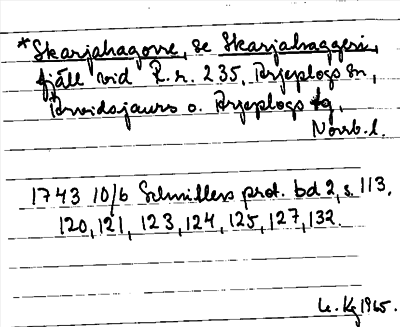 *Skarjahagove, se Skarjahaggesi,
fjäll vid R.r. 235, Arjeplogs sn,
Arvidsjaurs o. Arjeplogs tg,
Norrb.l.
1743 10/6 Schnitlers prot. bd 2, s. 113,
120, 121, 123, 124, 125, 127, 132.
1965.